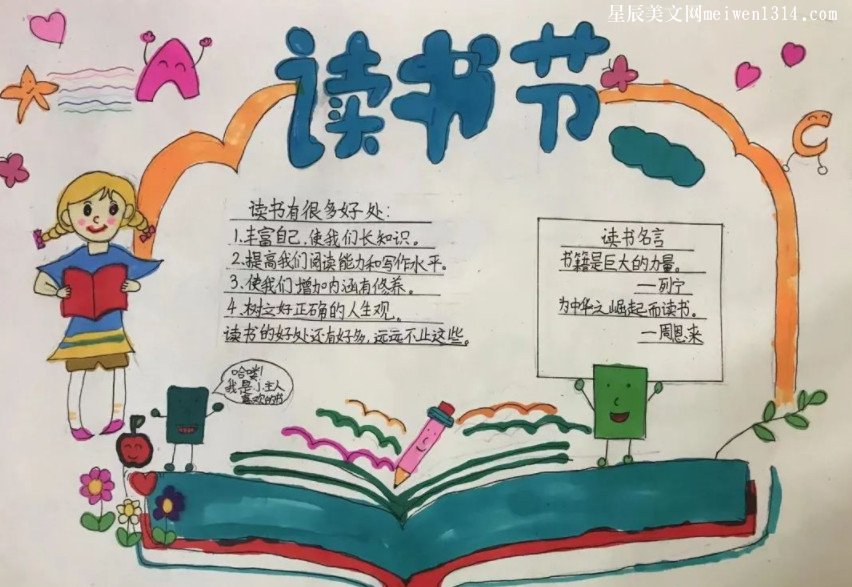 星辰美文网meiwen1314.com
读书节
读书有很多好处:
1.丰富自己,使我们长知识。
2.提高我们阅读能力和写作水平。
3.使我们增加内涵有修养。
4.树立好正确的人生观。
读书的好处还有好多,远远不止这些。
读书名言
书籍是巨大的力量。
—列宁
为中华之崛起而读书。
—周恩来
哈喽!
我是小主人
喜欢的书
A
C